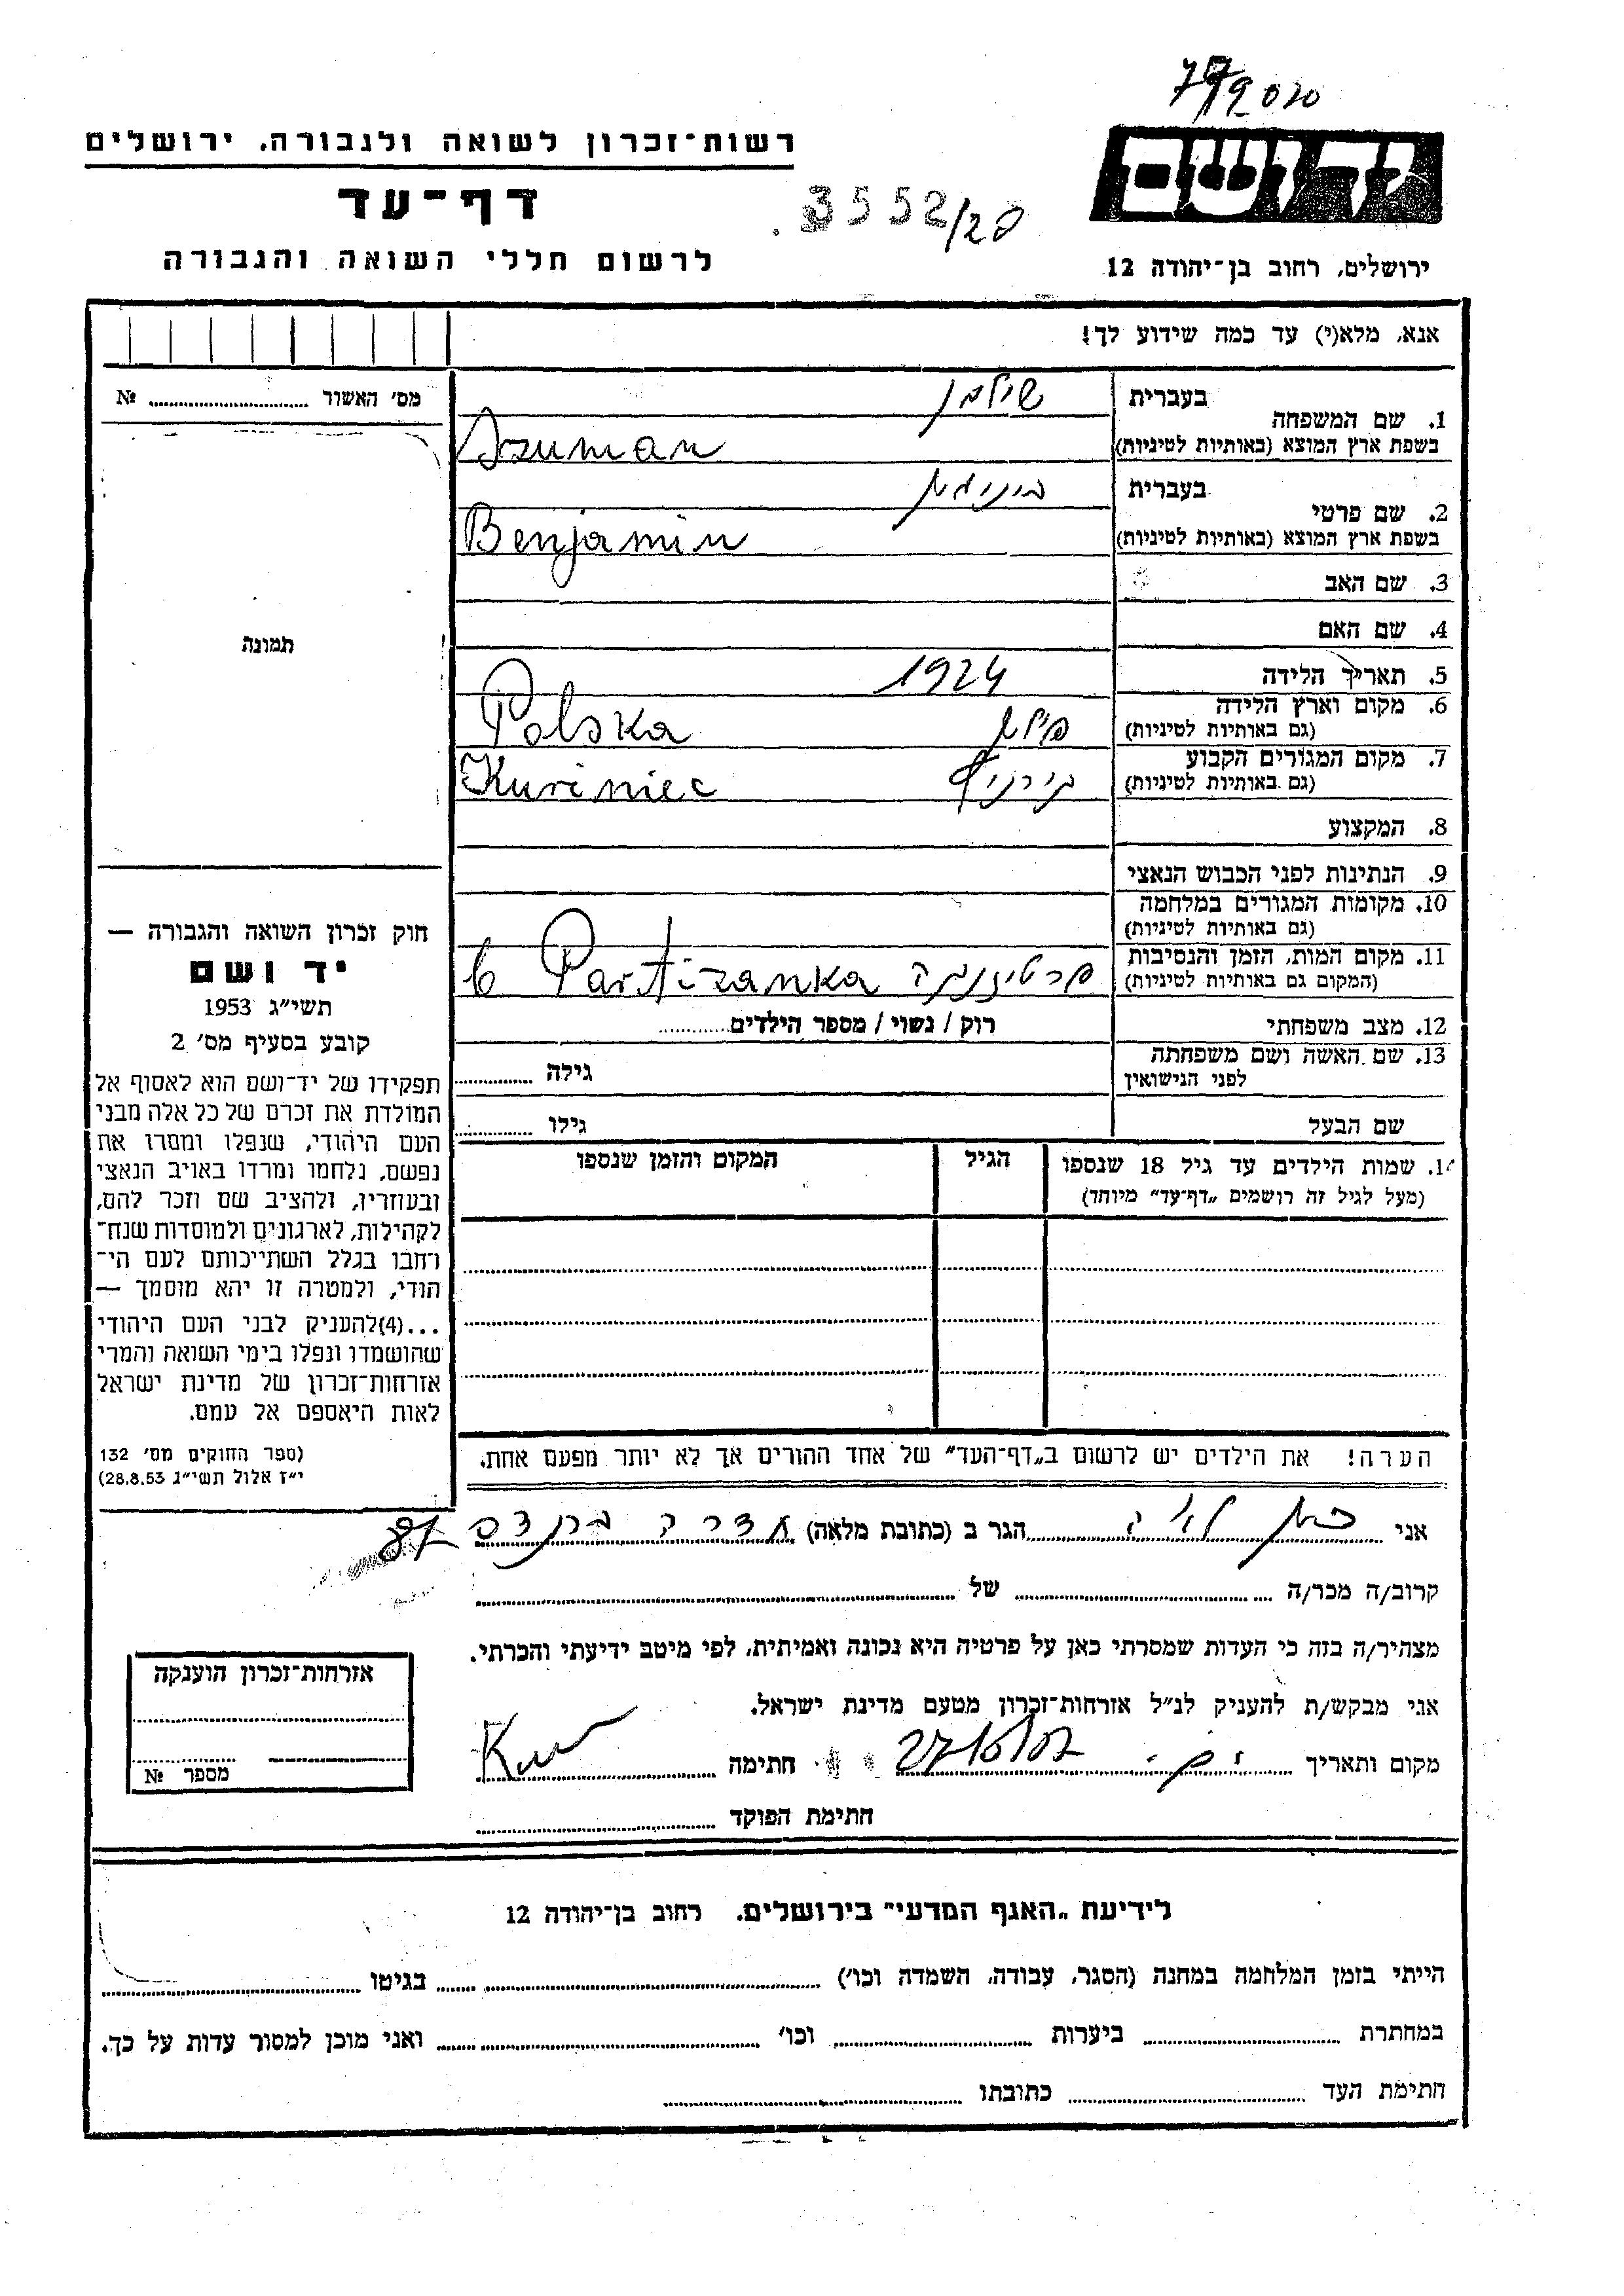 רשות־זכרון לשואה ולגבורה, ירושלים
דף־עד
3552/20
לרשום חללי השואה והגבורה
יד ושם
ירושלים, רחוב בן־יהודה 12
אנא, מלא(י) עד כמה שידוע לך!
1. שם המשפחה
בעברית שולמן
בשפת ארץ המוצא (באותיות לטיניות) Szuman
2. שם פרטי
בעברית בינימין
בשפת ארץ המוצא (באותיות לטיניות) Benjamin
3. שם האב
4. שם האם
5. תאריך הלידה 1924
6. מקום וארץ הלידה
(גם באותיות לטיניות) פולין Polska
7. מקום המגורים הקבוע
(גם באותיות לטיניות) Kuriniec
8. המקצוע
9. הנתינות לפני הכבוש הנאצי
10. מקומות המגורים במלחמה
(גם באותיות לטיניות)
11. מקום המות, הזמן והנסיבות
(המקום גם באותיות לטיניות) פרטיזנקה Partizanka
12. מצב משפחתי רוק / נשוי / מספר הילדים
13. שם האשה ושם משפחתה
לפני הנישואין גילה
שם הבעל גילו
14. שמות הילדים עד גיל 18 שנספו הגיל המקום והזמן שנספו
(מעל לגיל זה רושמים „דף־עד״ מיוחד)
הערה! את הילדים יש לרשום ב„דף־העד״ של אחד ההורים אך לא יותר מפעם אחת.
מס׳ האשור №
תמונה
חוק זכרון השואה והגבורה —
יד ושם
תשי״ג 1953
קובע בסעיף מס׳ 2
תפקידו של יד־ושם הוא לאסוף אל
המולדת את זכרם של כל אלה מבני
העם היהודי, שנפלו ומסרו את
נפשם, נלחמו ומרדו באויב הנאצי
ובעוזריו, ולהציב שם וזכר להם,
לקהילות, לארגונים ולמוסדות שנח־
רחבו בגלל השתייכותם לעם הי־
הודי, ולמטרה זו יהא מוסמך —
...(4)להעניק לבני העם היהודי
שהושמדו ונפלו בימי השואה והמרי
אזרחות־זכרון של מדינת ישראל
לאות היאספם אל עמם.
(ספר החוקים מס׳ 132
י״ז אלול תשי״ג 28.8.53)
אני לאה הגר ב (כתובת מלאה)
קרוב/ה מכר/ה של
מצהיר/ה בזה כי העדות שמסרתי כאן על פרטיה היא נכונה ואמיתית, לפי מיטב ידיעתי והכרתי.
אני מבקש/ת להעניק לנ״ל אזרחות־זכרון מטעם מדינת ישראל.
מקום ותאריך חתימה
חתימת הפוקד
אזרחות־זכרון הוענקה
מספר №
לידיעת „האגף המדעי״ בירושלים, רחוב בן־יהודה 12
הייתי בזמן המלחמה במחנה (הסגר, עבודה, השמדה וכו׳) בגיטו
במחתרת ביערות וכו׳ ואני מוכן למסור עדות על כך.
חתימת העד כתובתו